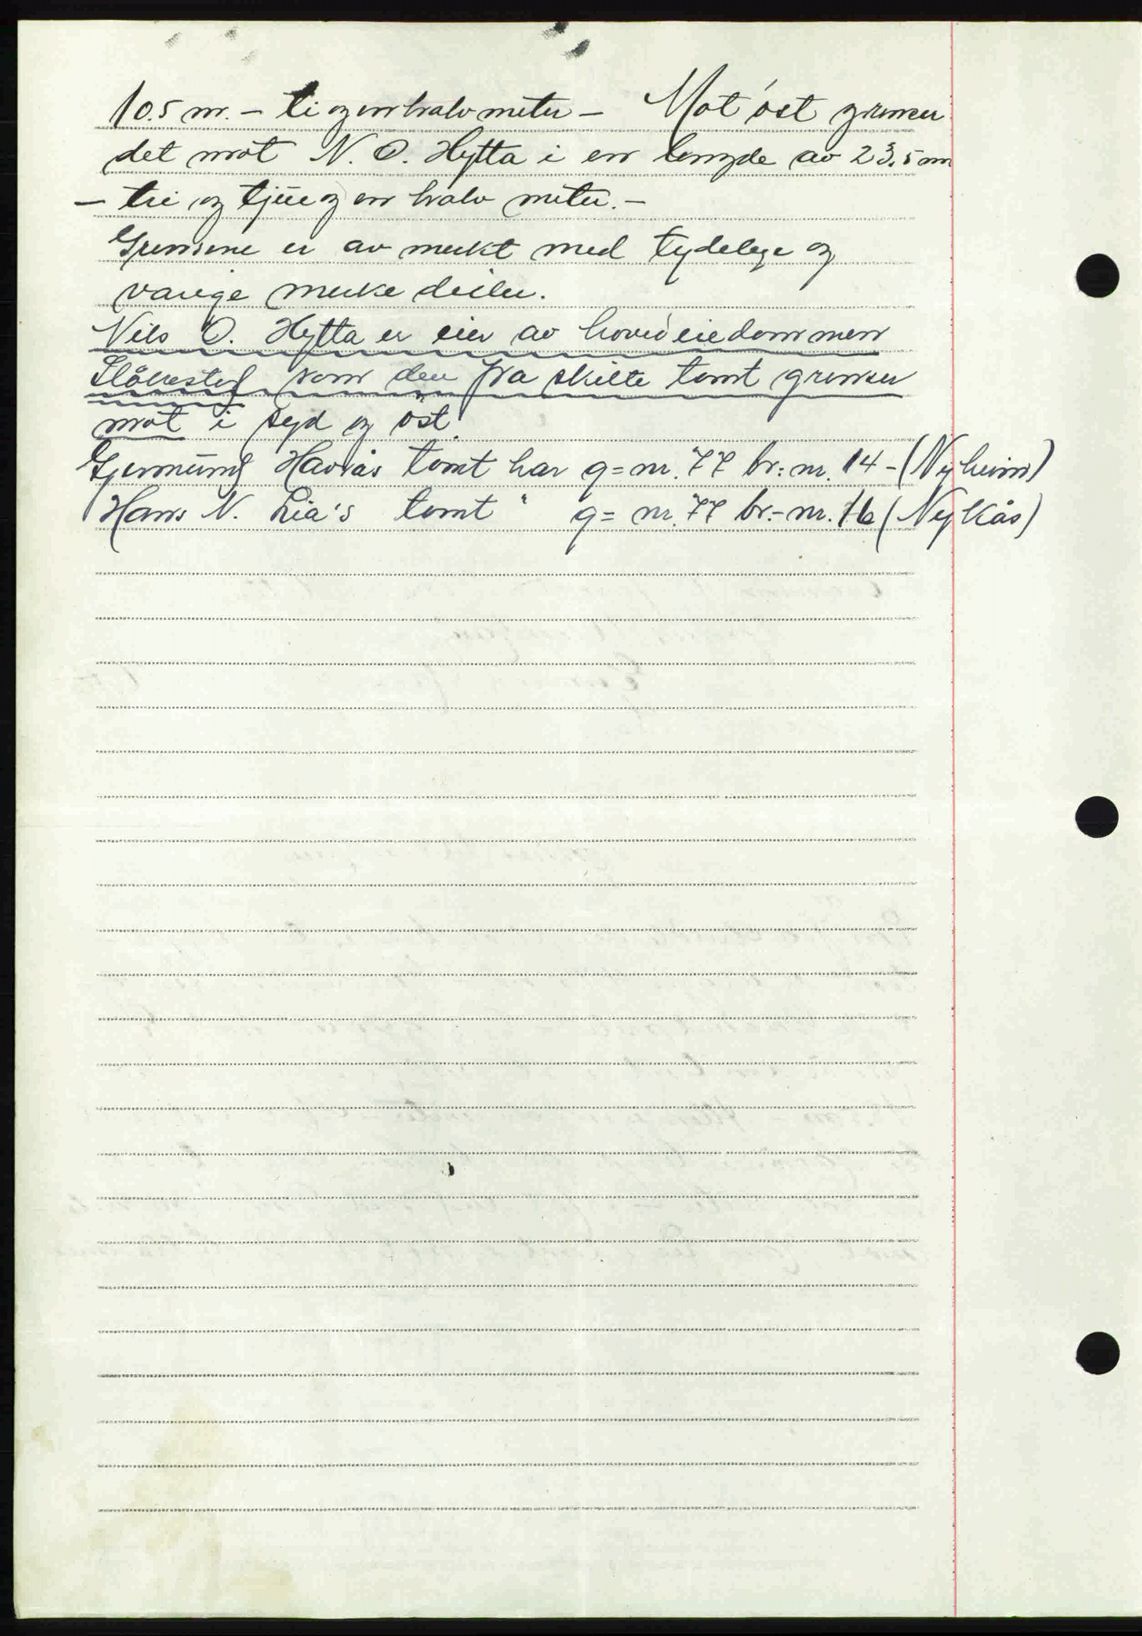 10.5 m. – ti og en halv meter – Mot øst grenser
det mot N. O. Hytta i en lengde av 23,5 m
– tre og tjue og en halv meter. –
Grensene er av merkt med tydelege og
varige merke deiler.
Nils O. Hytta er eier av hovedeiedommen
som den fra skilte tomt grenser
mot i syd og øst.
Gjermund Havrås tomt har g=nr. 77 br:nr. 14 – (Nyheim)
Hans N. Lia's tomt " g= nr. 77 br.-nr. 16 (Nylkås)